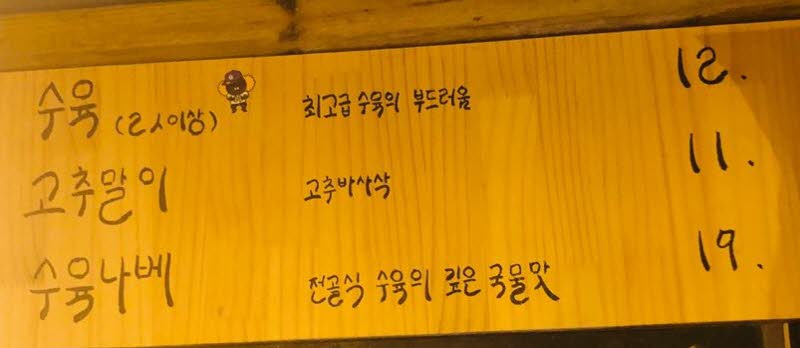 수육 (2人이상) 최고급 수육의 부드러움 12.
고추말이 고추바사삭 11.
수육나베 전골식 수육의 깊은 국물맛 19.